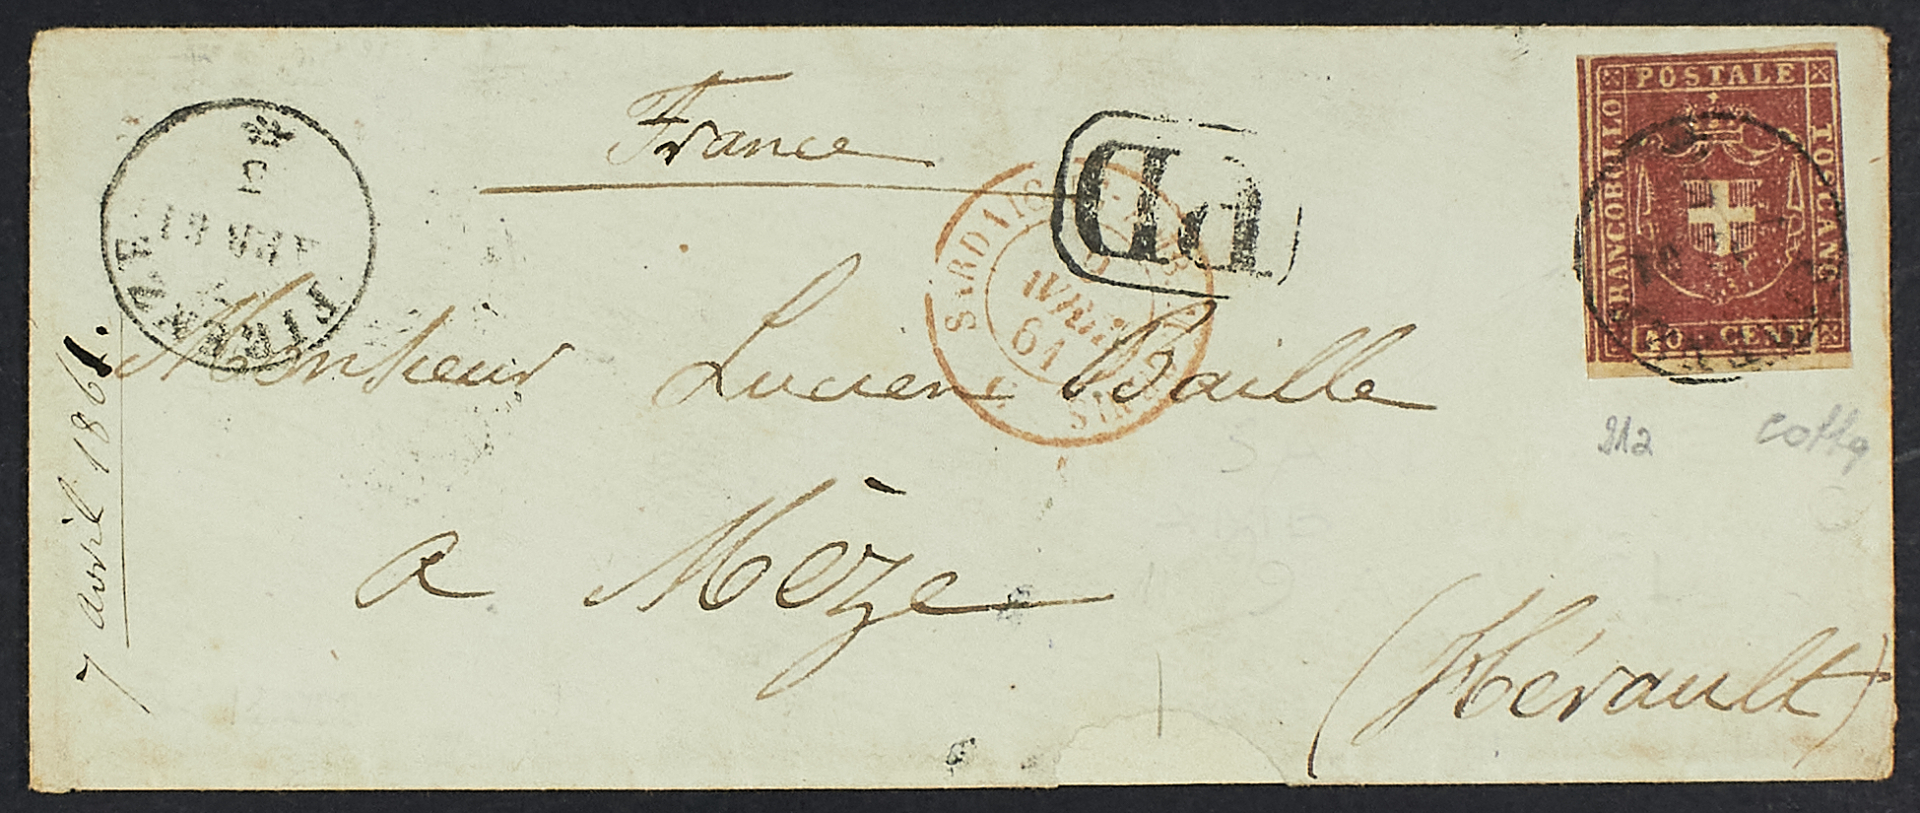 France
PD
FRANCOBOLLO
POSTALE
TOSCANO
40 CENT
FIRENZE
APR 61
SARDAIGNE
AVRIL
61
Monsieur Lucien Baille
a Mèze
(Hérault)
7 avril 1861.